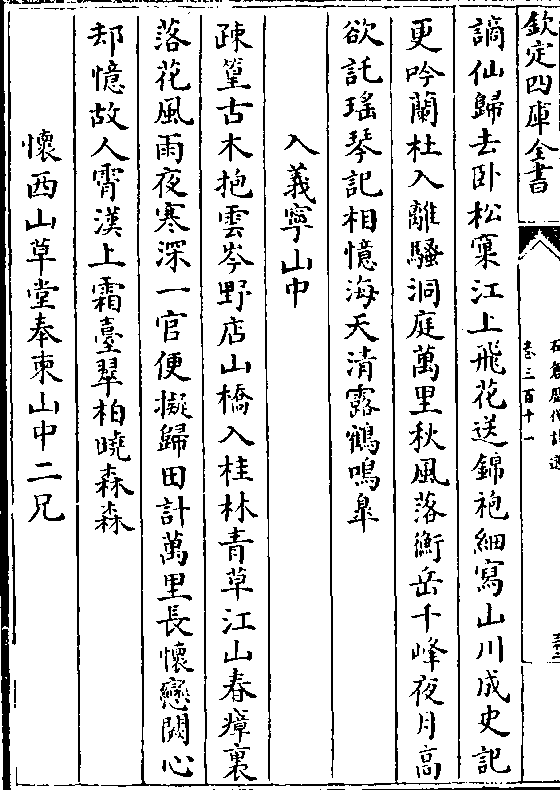 欽定四庫全書
卷三百十一
謫仙歸去卧松窠江上飛花送錦袍細寫山川成史記
更吟蘭杜入離騷洞庭萬里秋風落衡岳千峰夜月高
欲託瑶琴記相憶海天清露鶴鳴臯
入義寧山中
疎篁古木抱雲岑野店山橋入桂林青草江山春瘴裏
落花風雨夜寒深一官便擬歸田計萬里長懷戀闕心
却憶故人霄漢上霜臺翠柏曉森森
懷西山草堂奉柬山中二兄